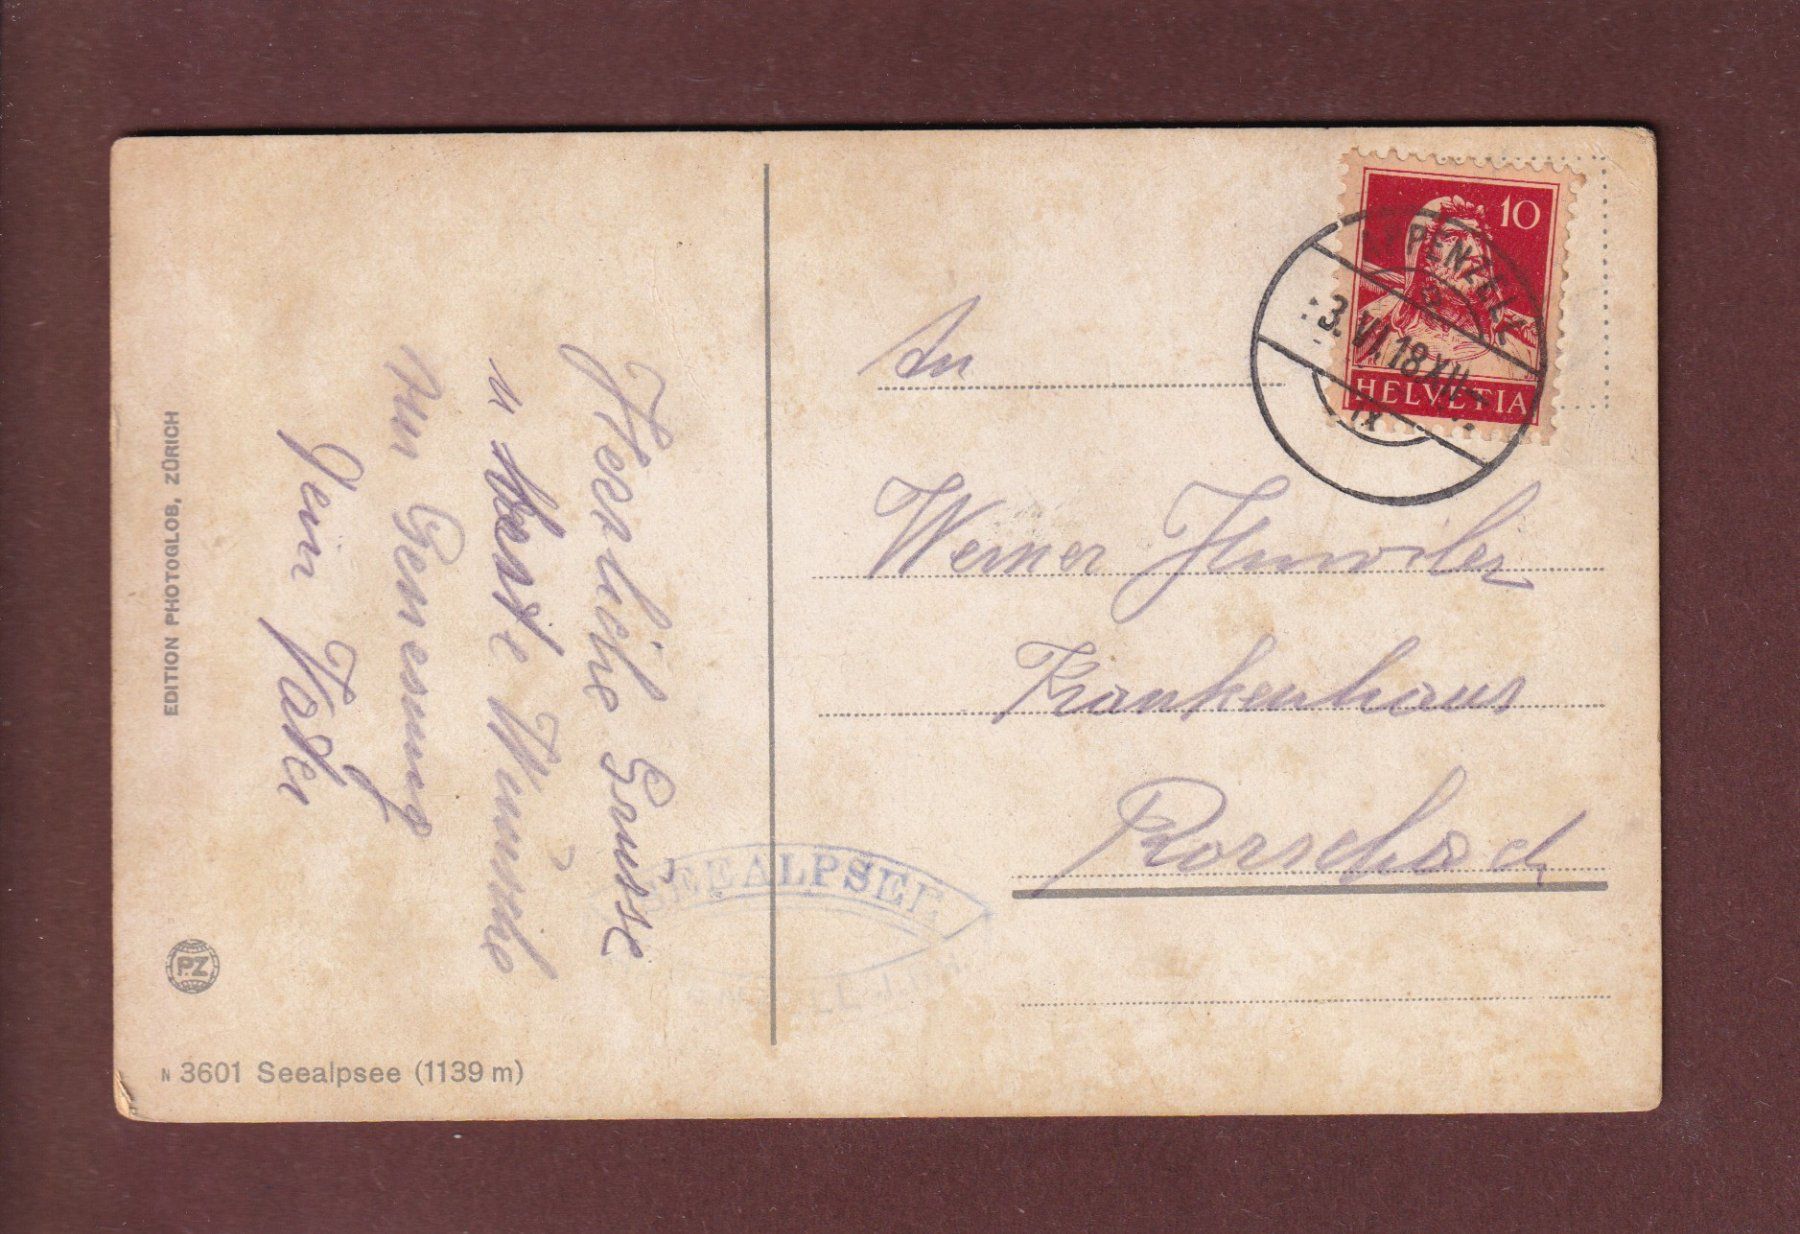 Herzliche Grüsse
u beste Wünsche
zur Genesung
Dein Vater
EDITION PHOTOGLOB, ZÜRICH
PZ
N 3601 Seealpsee (1139 m)
SEEALPSEE
10
HELVETIA
APPENZELL
3.VI.18 XII
IX
An
Werner
Krankenhaus
Rorschach